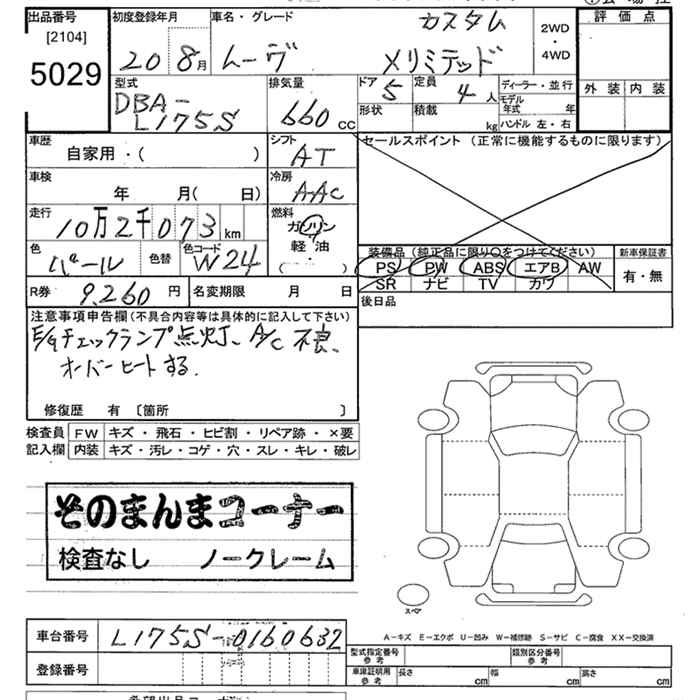 出品番号
[2104]
5029
初度登録年月
20 8月
車名・グレード
ムーヴ
カスタム
メリミテッド
2WD
・
4WD
評 価 点
外 装 内 装
型式
DBA-
L175S
排気量
660 CC
ドア 5
定員 4 人
形状
積載 kg
ディーラー・並行
モデル年式 年
ハンドル 左・右
車歴
自家用・( )
シフト
AT
セールスポイント (正常に機能するものに限ります)
車検
年 月( 日)
冷房
AAC
走行
10万2千073 km
燃料
ガソリン
軽 油
( )
色
パール
色替
色コード
W24
装備品 (純正品に限り○をつけてください)
PS PW ABS エアB AW
SR ナビ TV カワ
新車保証書
有・無
R券 9,260 円
名変期限 月 日
後日品
注意事項申告欄(不具合内容等は具体的に記入して下さい)
E/gチェックランプ点灯、A/C 不良、
オーバーヒートする。
修復歴 有 〔箇所 〕
検査員 FW キズ・飛石・ヒビ割・リペア跡・×要
記入欄 内装 キズ・汚レ・コゲ・穴・スレ・キレ・破レ
そのまんまコーナー
検査なし ノークレーム
スペア
A-キズ E-エクボ U-凹み W-補修跡 S-サビ C-腐食 XX-交換済
車台番号 L175S-0160632
登録番号
型式指定番号
参考
類別区分番号
参考
車庫証明用
参考
長さ cm 幅 cm 高さ cm